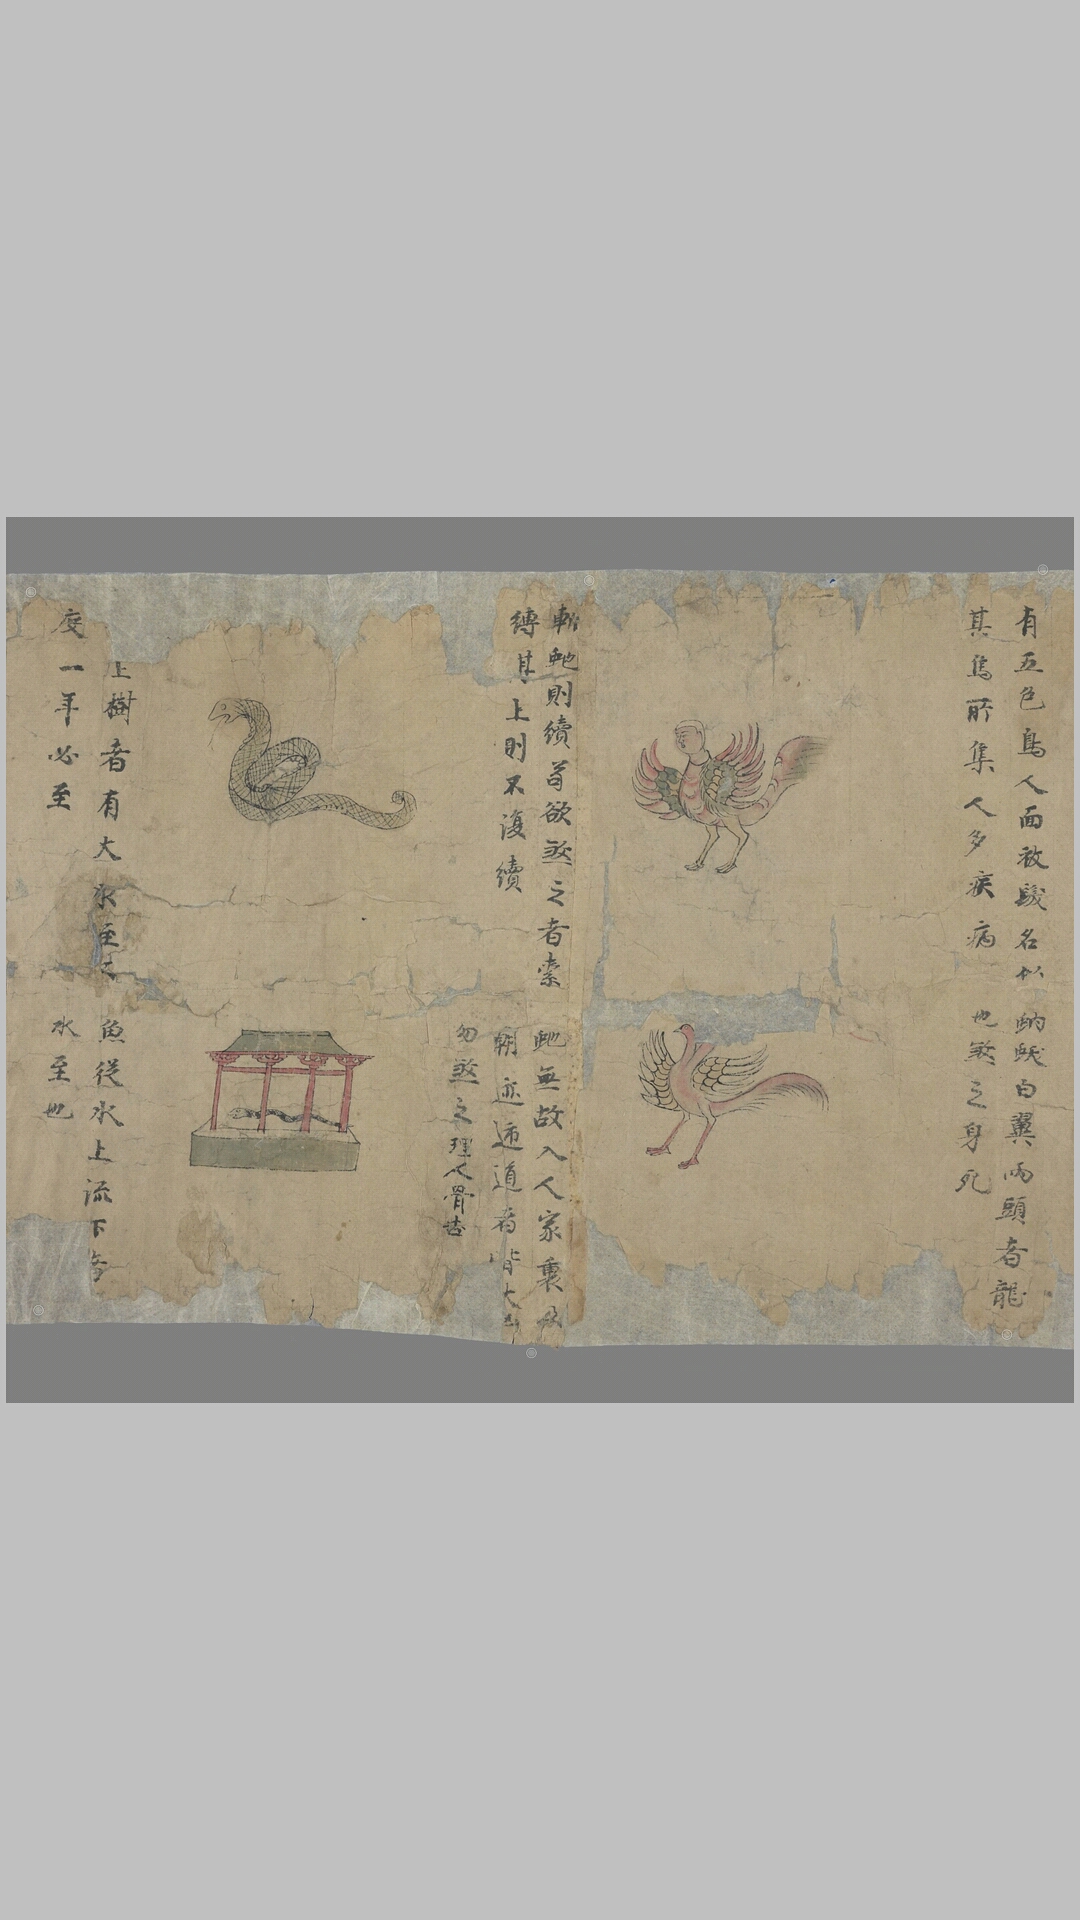 有五色鳥人面被髮名似
其鳥所集人多疾病
蚺蛇白翼兩頭者龍
也煞之身死
斬虵則續苟欲煞之者索
縛其上則不復續
虵無故入人家裏及
朝亦遮道者皆大凶
勿煞之理人骨吉
上樹者有大水至
度一年必至
魚從水上流下者
水至也